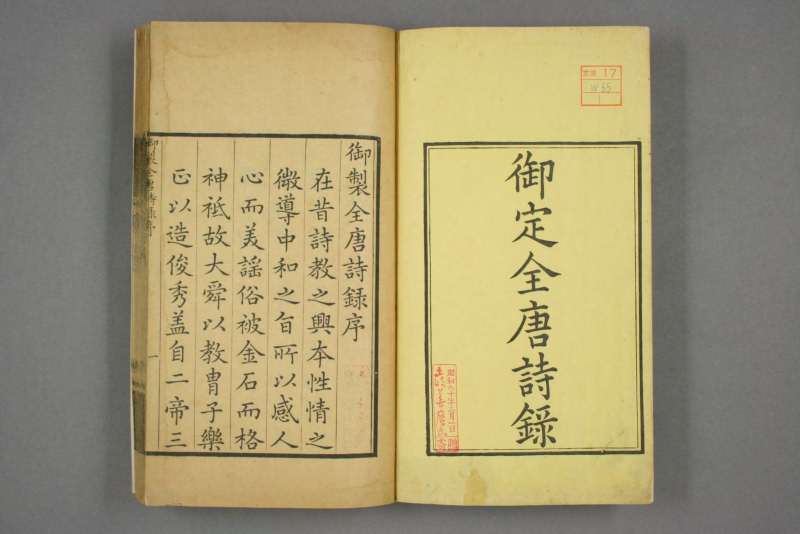 文庫 17
W 55
1
御定全唐詩錄
御製全唐詩錄序
在昔詩教之興本性情之
微導中和之旨所以感人
心而美謠俗被金石而格
神祇故大舜以教胄子樂
正以造俊秀盖自二帝三
御製全唐詩錄序
一